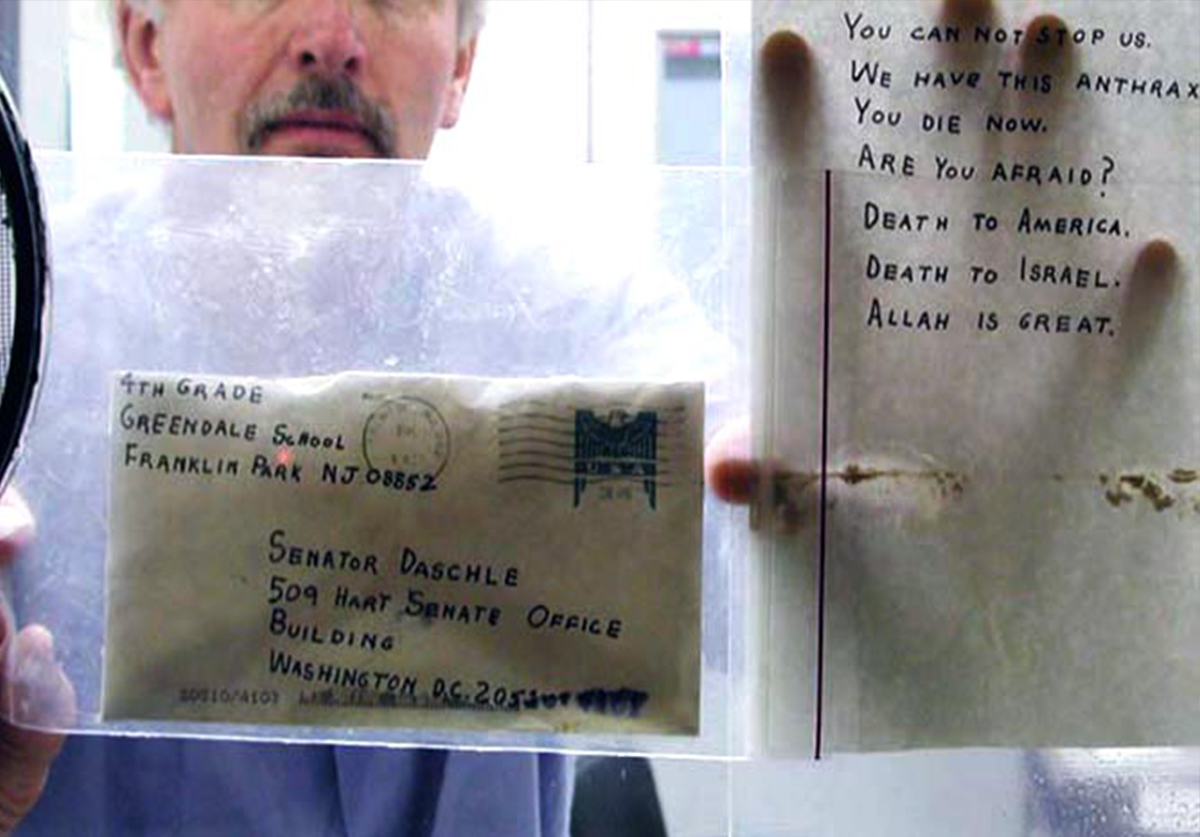 YOU CAN NOT STOP US.
WE HAVE THIS ANTHRAX
YOU DIE NOW.
ARE YOU AFRAID?
DEATH TO AMERICA.
DEATH TO ISRAEL.
ALLAH IS GREAT.
4TH GRADE
GREENDALE SCHOOL
FRANKLIN PARK NJ 08852
USA
SENATOR DASCHLE
509 HART SENATE OFFICE
BUILDING
WASHINGTON D.C. 205
20510/4103